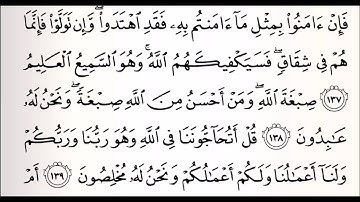 فَإِنْ ءَامَنُوا۟ بِمِثْلِ مَآ ءَامَنتُم بِهِۦ فَقَدِ ٱهْتَدَوا۟ ۖ وَّإِن تَوَلَّوْا۟ فَإِنَّمَا
هُمْ فِى شِقَاقٍ ۖ فَسَيَكْفِيكَهُمُ ٱللَّهُ ۚ وَهُوَ ٱلسَّمِيعُ ٱلْعَلِيمُ
١٣٧ صِبْغَةَ ٱللَّهِ ۖ وَمَنْ أَحْسَنُ مِنَ ٱللَّهِ صِبْغَةً ۖ وَنَحْنُ لَهُۥ
عَـٰبِدُونَ ١٣٨ قُلْ أَتُحَآجُّونَنَا فِى ٱللَّهِ وَهُوَ رَبُّنَا وَرَبُّكُمْ
وَلَنَآ أَعْمَـٰلُنَا وَلَكُمْ أَعْمَـٰلُكُمْ وَنَحْنُ لَهُۥ مُخْلِصُونَ ١٣٩ أَمْ